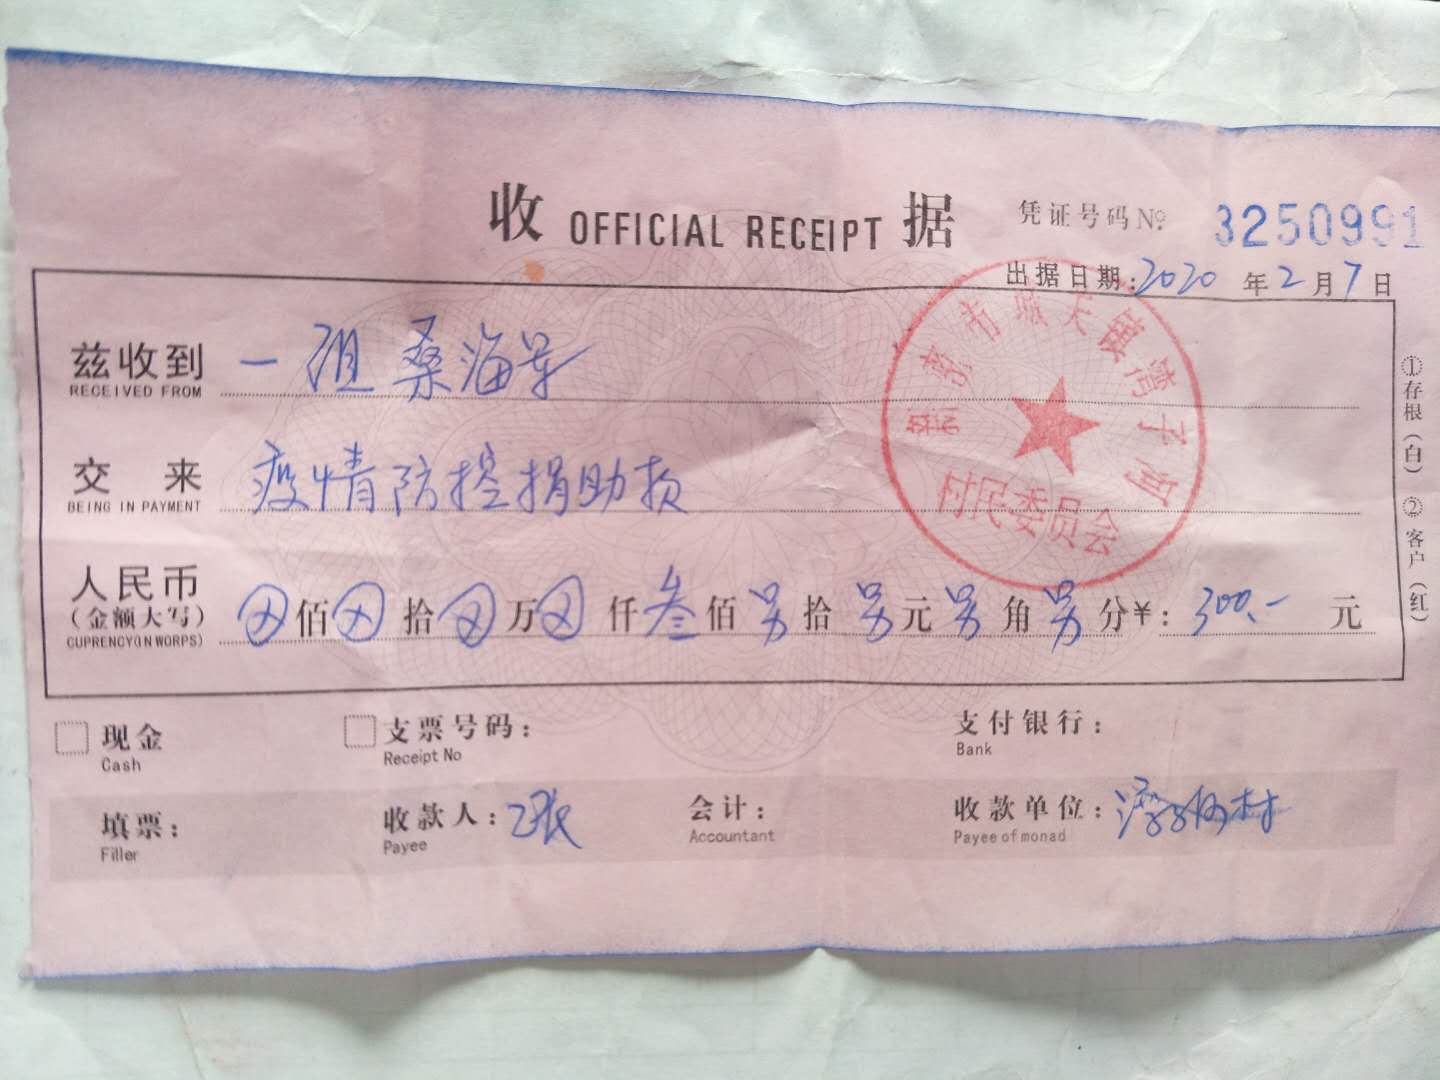 收 OFFICIAL RECEIPT 据 凭证号码№ 3250991
出据日期:2020 年 2 月 7 日
兹收到 一组 桑海军
RECEIVED FROM
交 来 疫情防控捐助款
BEING IN PAYMENT
人民币
(金额大写) 佰 拾 万 仟 叁 佰 另 拾 另 元 另 角 另 分 ¥: 300.- 元
CUPRENCY(IN WORPS)
村民委员会
①存根(白) ②客户(红)
现金 支票号码: 支付银行:
Cash Receipt No Bank
填票: 收款人: 张 会计: 收款单位:
Filler Payee Accountant Payee of monad